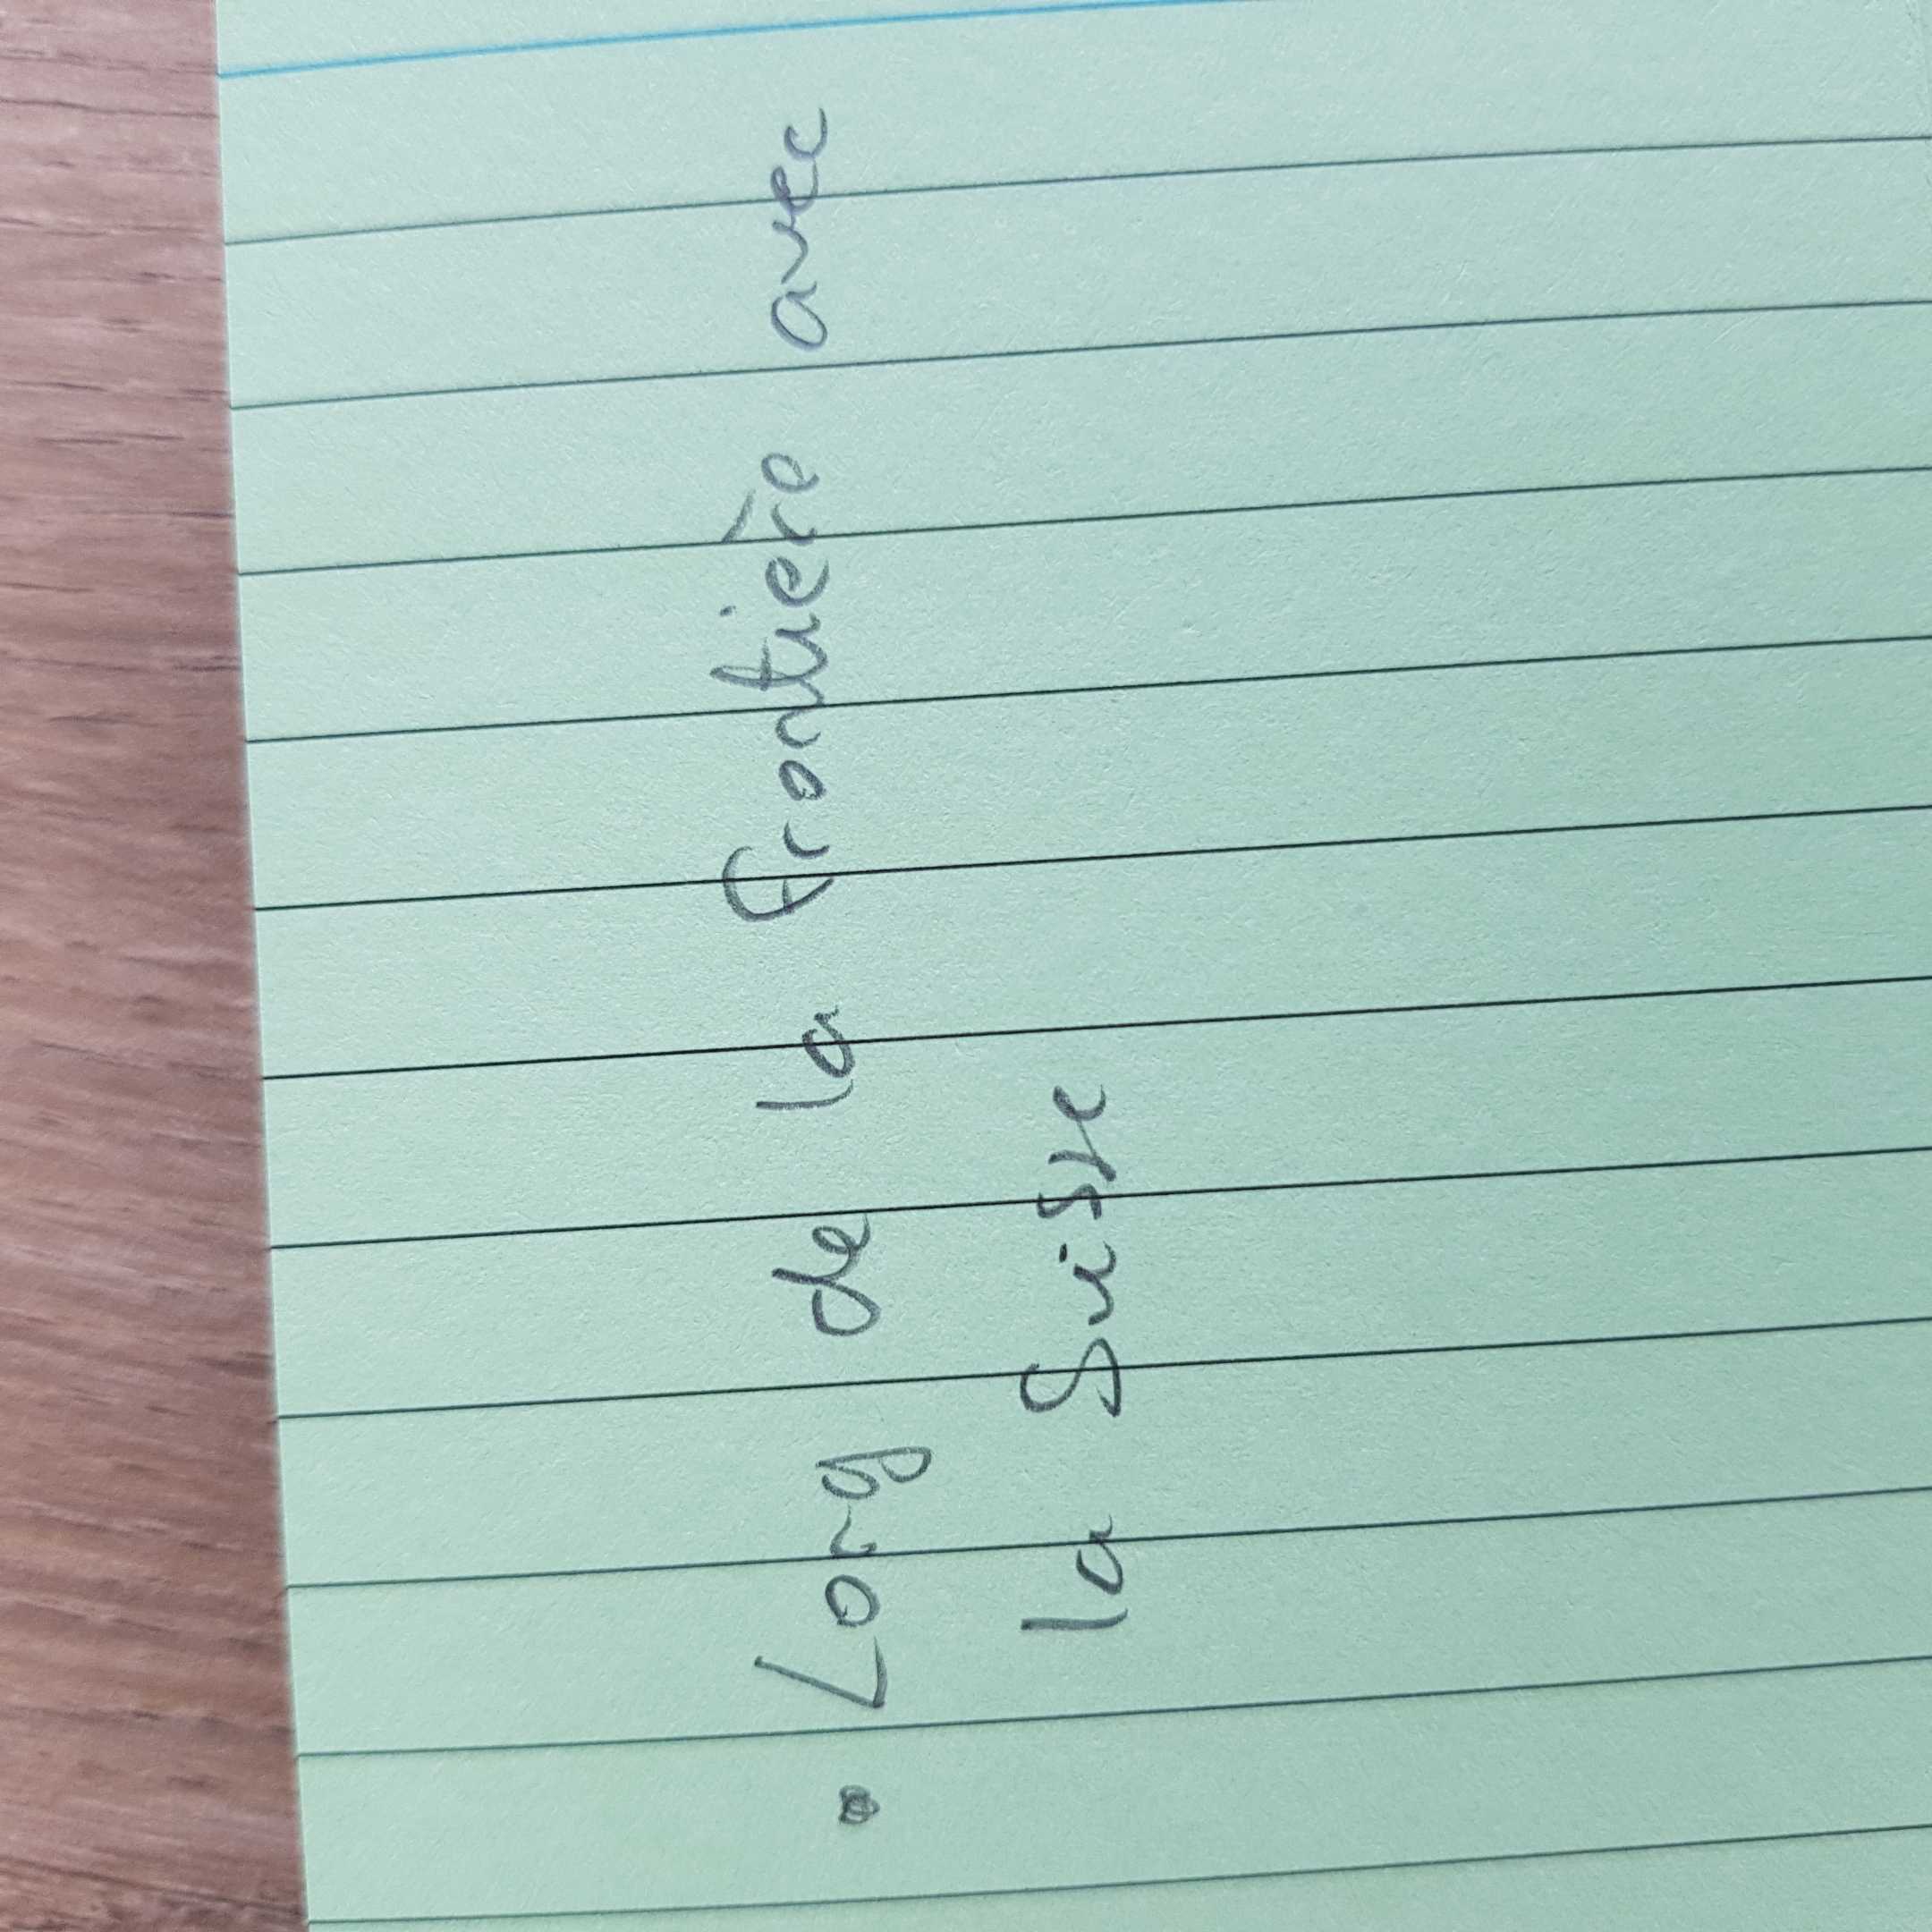 • Long de la frontière avec
la Suisse